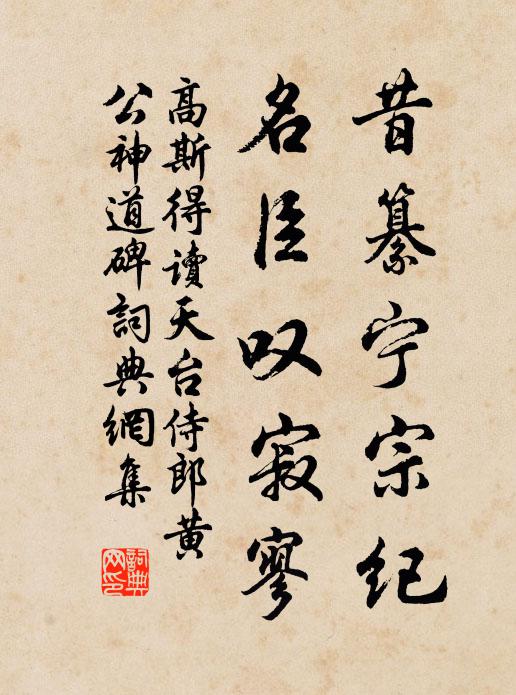 昔纂宁宗纪
名臣叹寂寥
高斯得读天台侍郎黄
公神道碑詞典網集
詞典网印